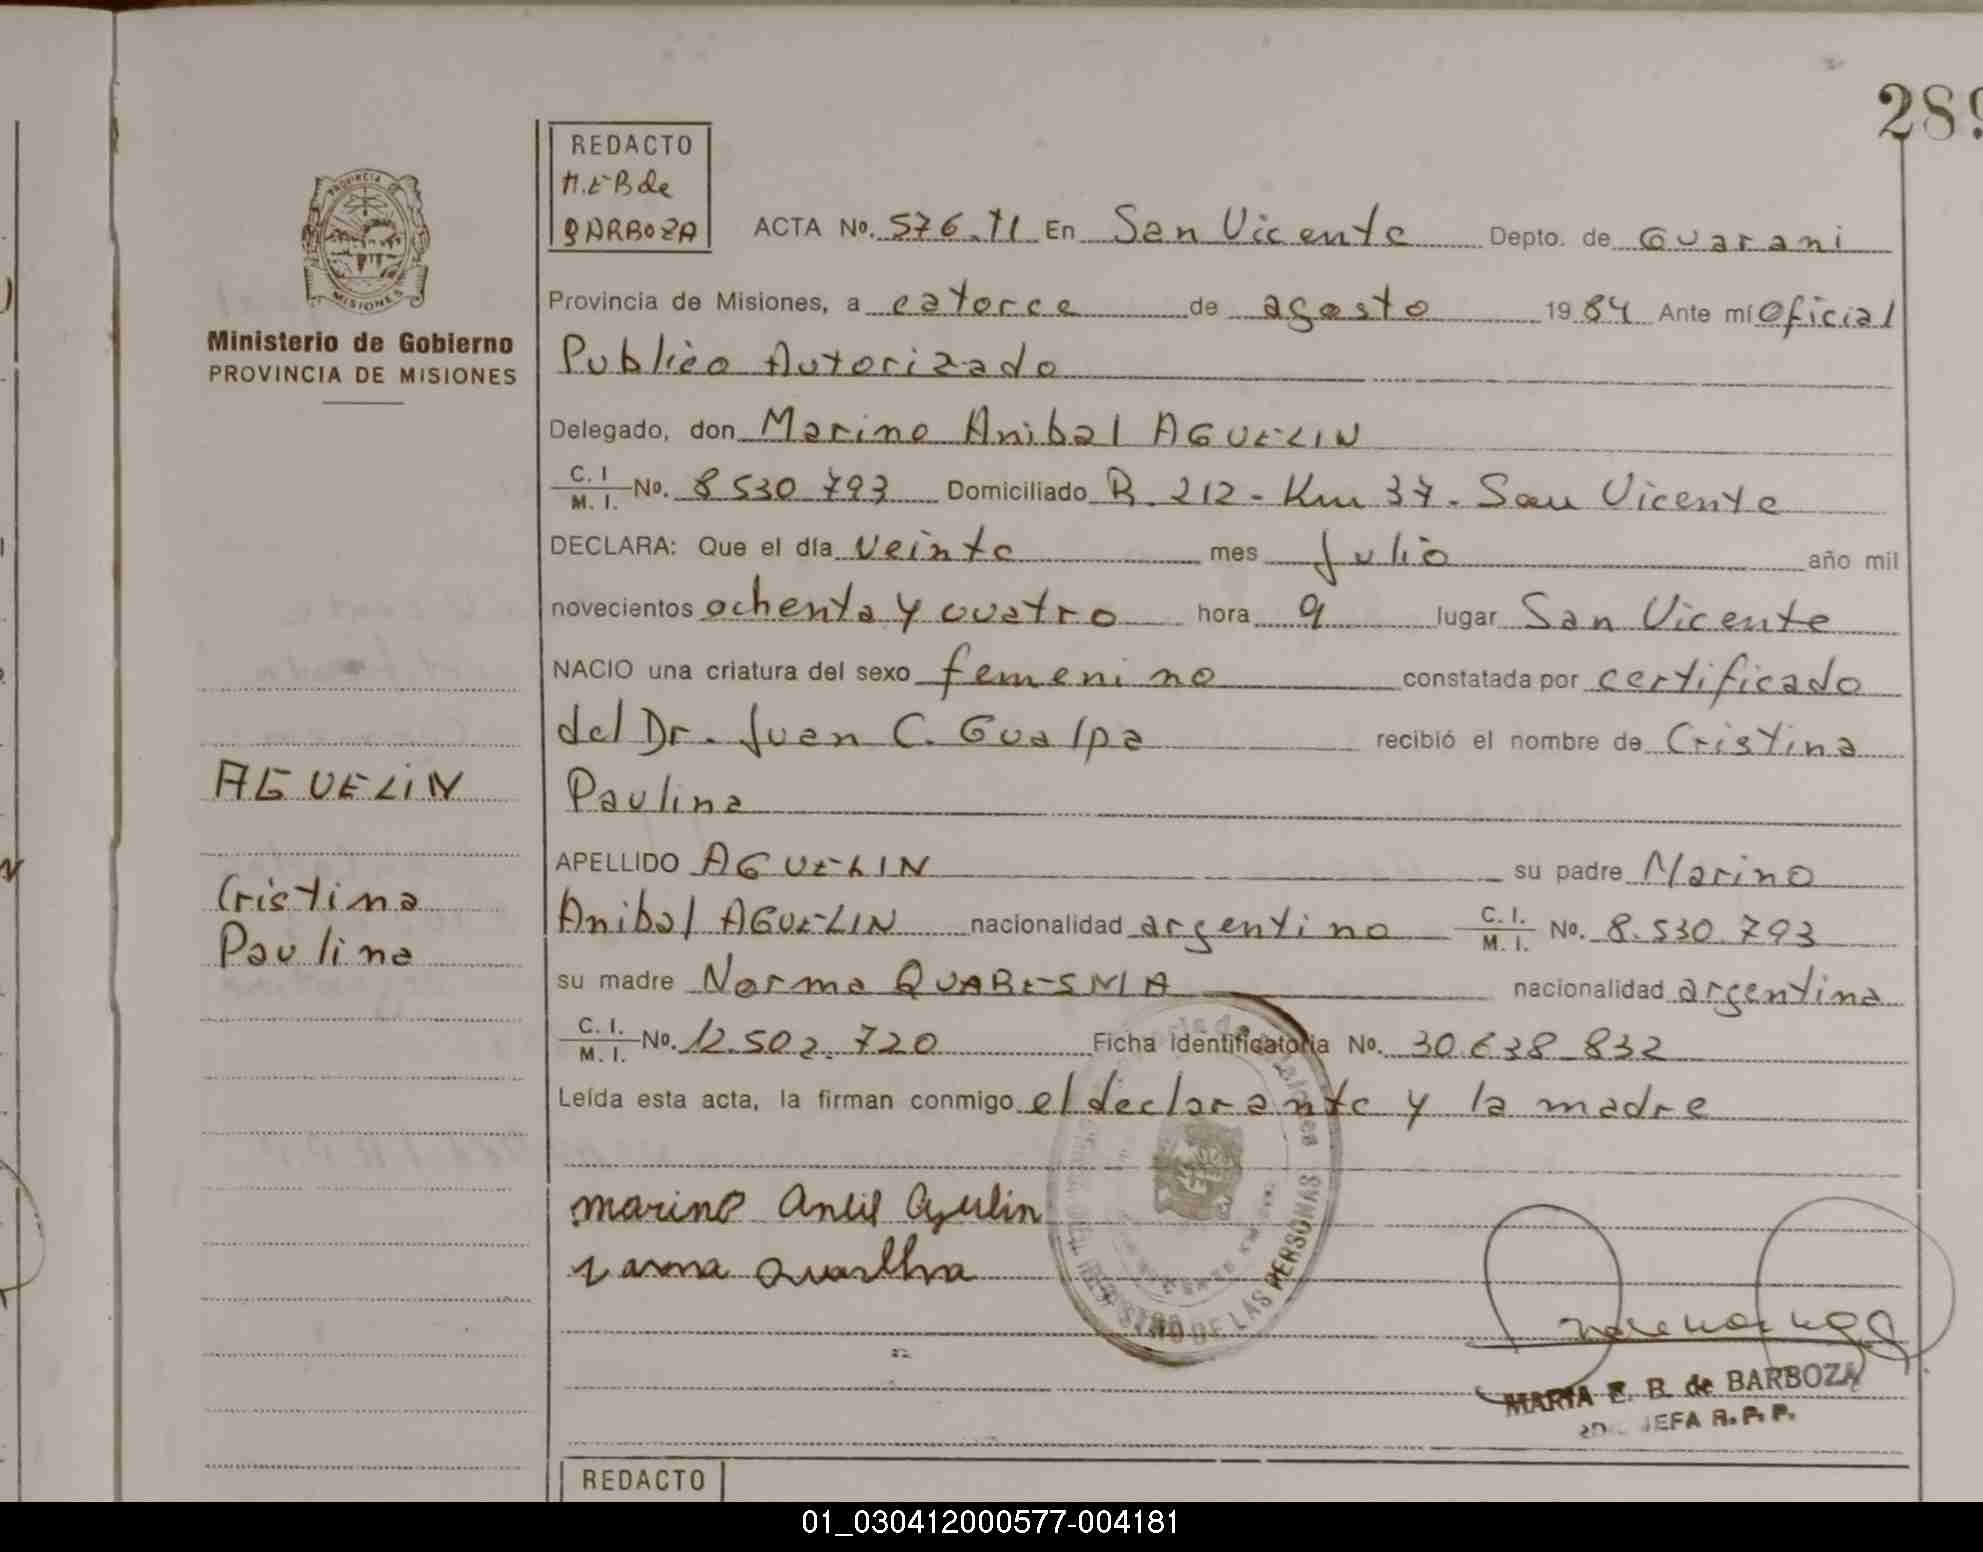 289
REDACTO
M.E B de
BARBOZA
ACTA No. 576. TI En San Vicente Depto. de Guarani
PROVINCIA DE
MISIONES
Ministerio de Gobierno
PROVINCIA DE MISIONES
Provincia de Misiones, a catorce de agosto 1984 Ante mí Oficial
Publico Autorizado
Delegado, don Marino Anibal AGUELIN
C. I
M. I. No. 8 530 793 Domiciliado R. 212 - Km 37 - San Vicente
DECLARA: Que el día veinte mes Julio año mil
novecientos ochenta y cuatro hora 9 lugar San Vicente
NACIO una criatura del sexo femenino constatada por certificado
del Dr. Juan C. Gualpa recibió el nombre de Cristina
Paulina
AGUELIN
Cristina
Paulina
APELLIDO AGUELIN su padre Marino
Anibal AGUELIN nacionalidad argentino C. I.
M. I. No. 8.530.793
su madre Norma QUARESMA nacionalidad argentina
C. I.
M. I. No. 12.502.720 Ficha Identificatoria No. 30.638.832
Leída esta acta, la firman conmigo el declarante y la madre
marino
DE LAS PERSONAS
MARIA E. B. de BARBOZA
JEFA R. P. P.
REDACTO
01_030412000577-004181